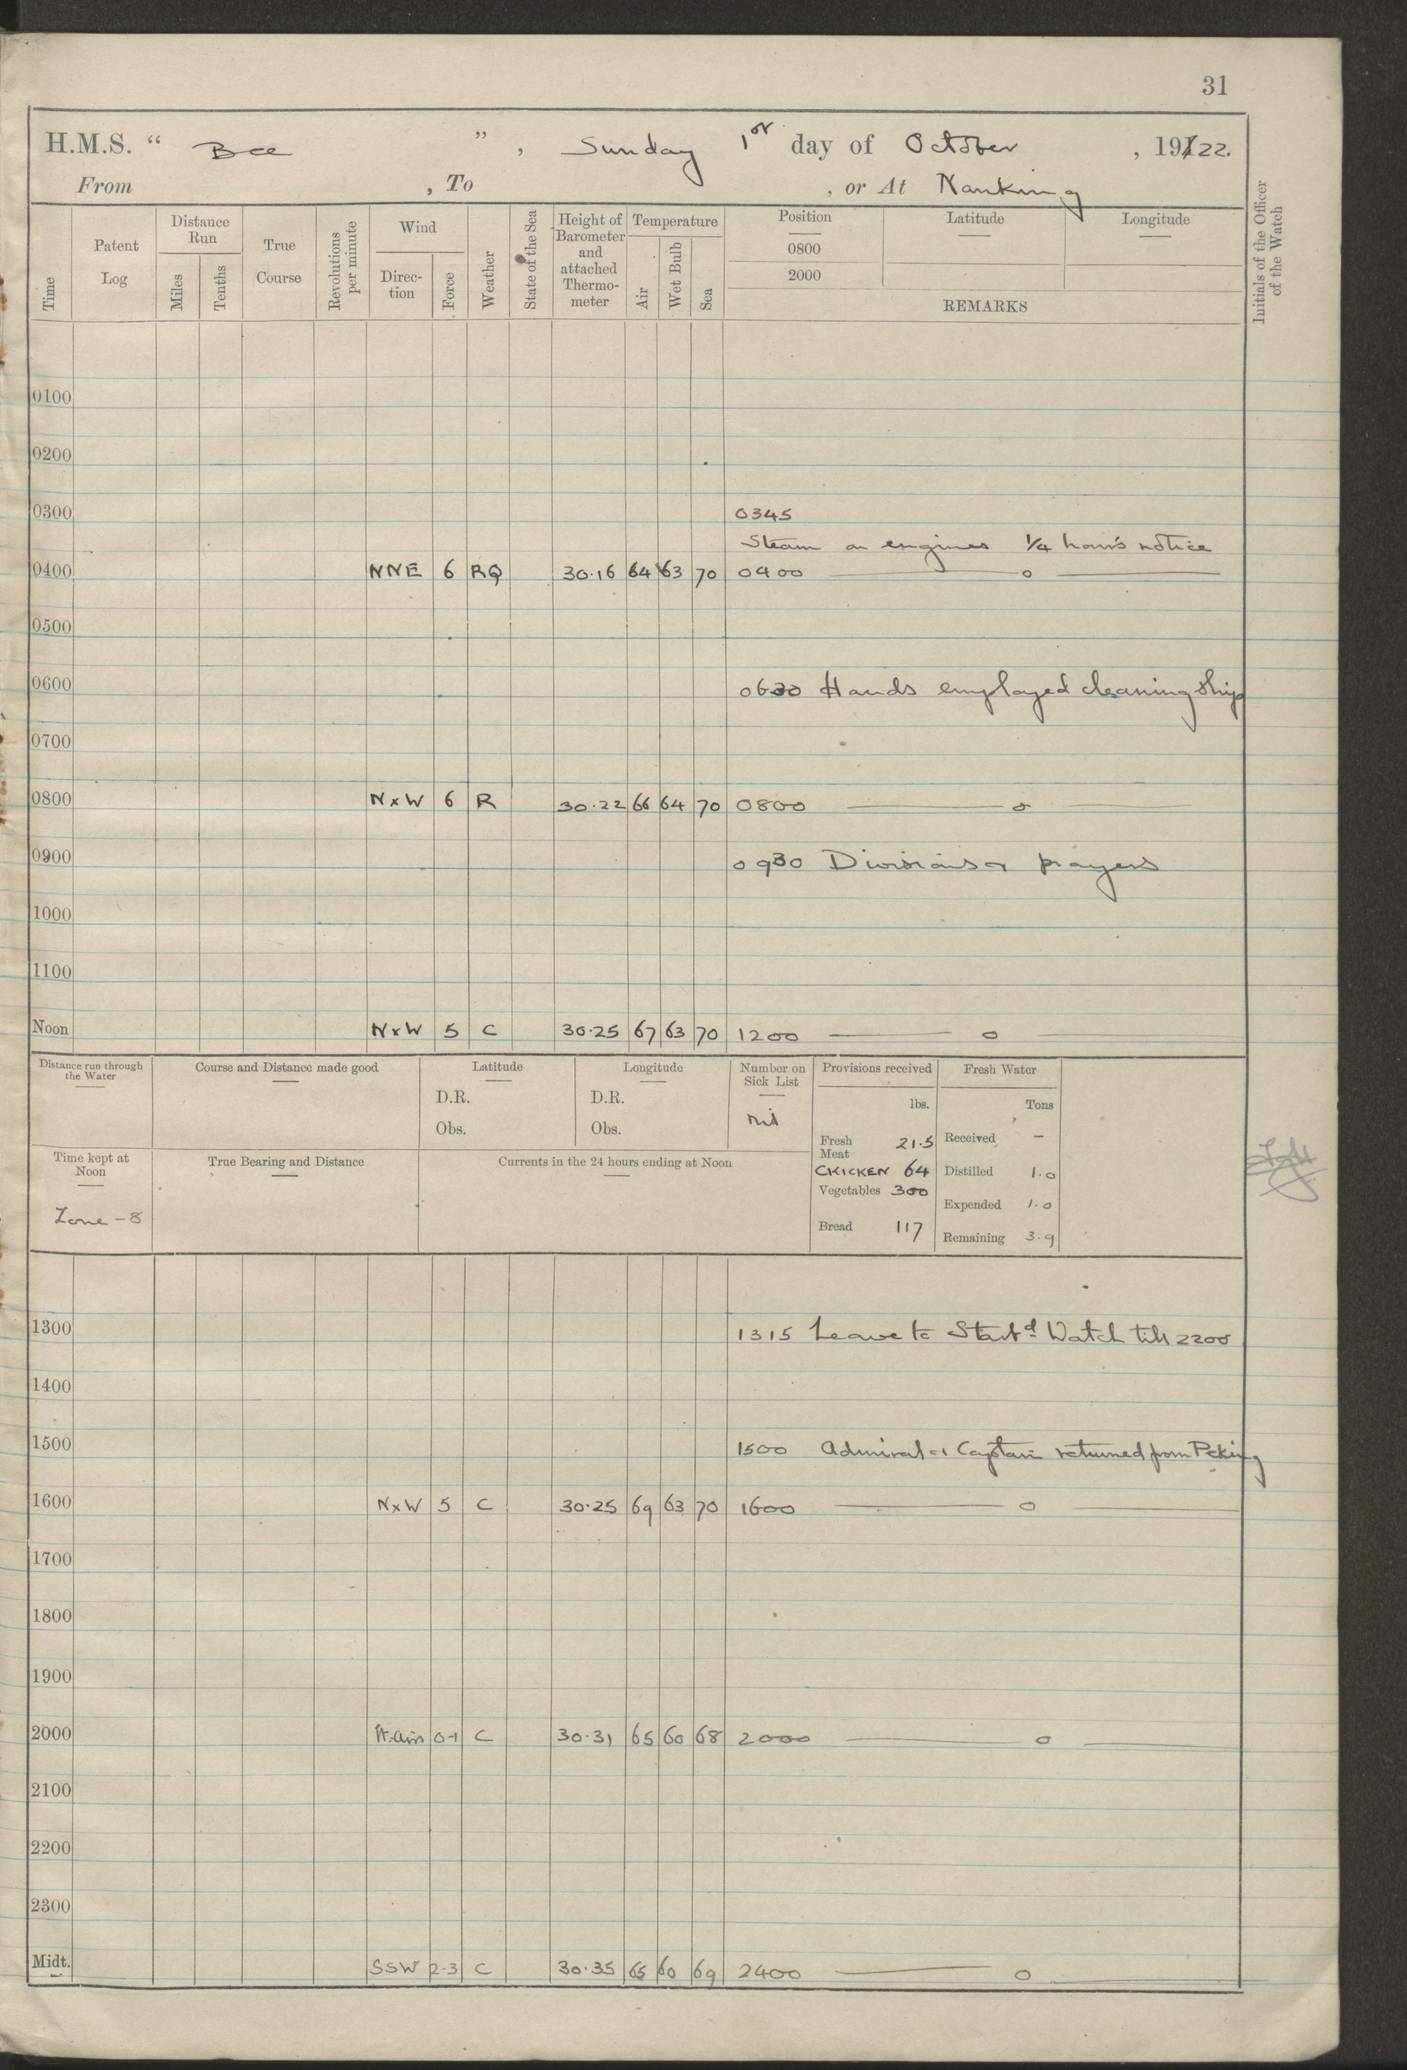 31
H.M.S. “ Bee ” , Sunday 1st day of October , 191/22.
From , To , or At Nanking
Time Patent Log Distance Run Miles Tenths True Course Revolutions per minute Wind Direc-tion Force Weather State of the Sea Height of Barometer and attached Thermo-meter Temperature Air Wet Bulb Sea Position Latitude Longitude
0800
2000
REMARKS
Initials of the Officer of the Watch
0100
0200
0300 0345
Steam on engines ¼ hour's notice
0400 NNE 6 RQ 30.16 64 63 70 0400 o
0500
0600 0630 Hands employed cleaning ship
0700
0800 NxW 6 R 30.22 66 64 70 0800 o
0900 0930 Divisions & prayers
1000
1100
Noon NxW 5 C 30.25 67 63 70 1200 o
Distance run through the Water Course and Distance made good Latitude Longitude Number on Sick List Provisions received Fresh Water
D.R. D.R. lbs. Tons
Obs. Obs. Nil
Fresh Meat 21.5 Received -
Time kept at Noon True Bearing and Distance Currents in the 24 hours ending at Noon
CKICKEN 64 Distilled 1.0
Vegetables 300 Expended 1.0
Zone -8 Bread 117 Remaining 3.9
1300 1315 Leave to Starbd Watch till 2200
1400
1500 1500 Admiral & Captain returned from Peking
1600 NxW 5 C 30.25 69 63 70 1600 o
1700
1800
1900
2000 Lt. airs 0-1 C 30.31 65 60 68 2000 o
2100
2200
2300
Midt. SSW 2-3 C 30.35 65 60 69 2400 o